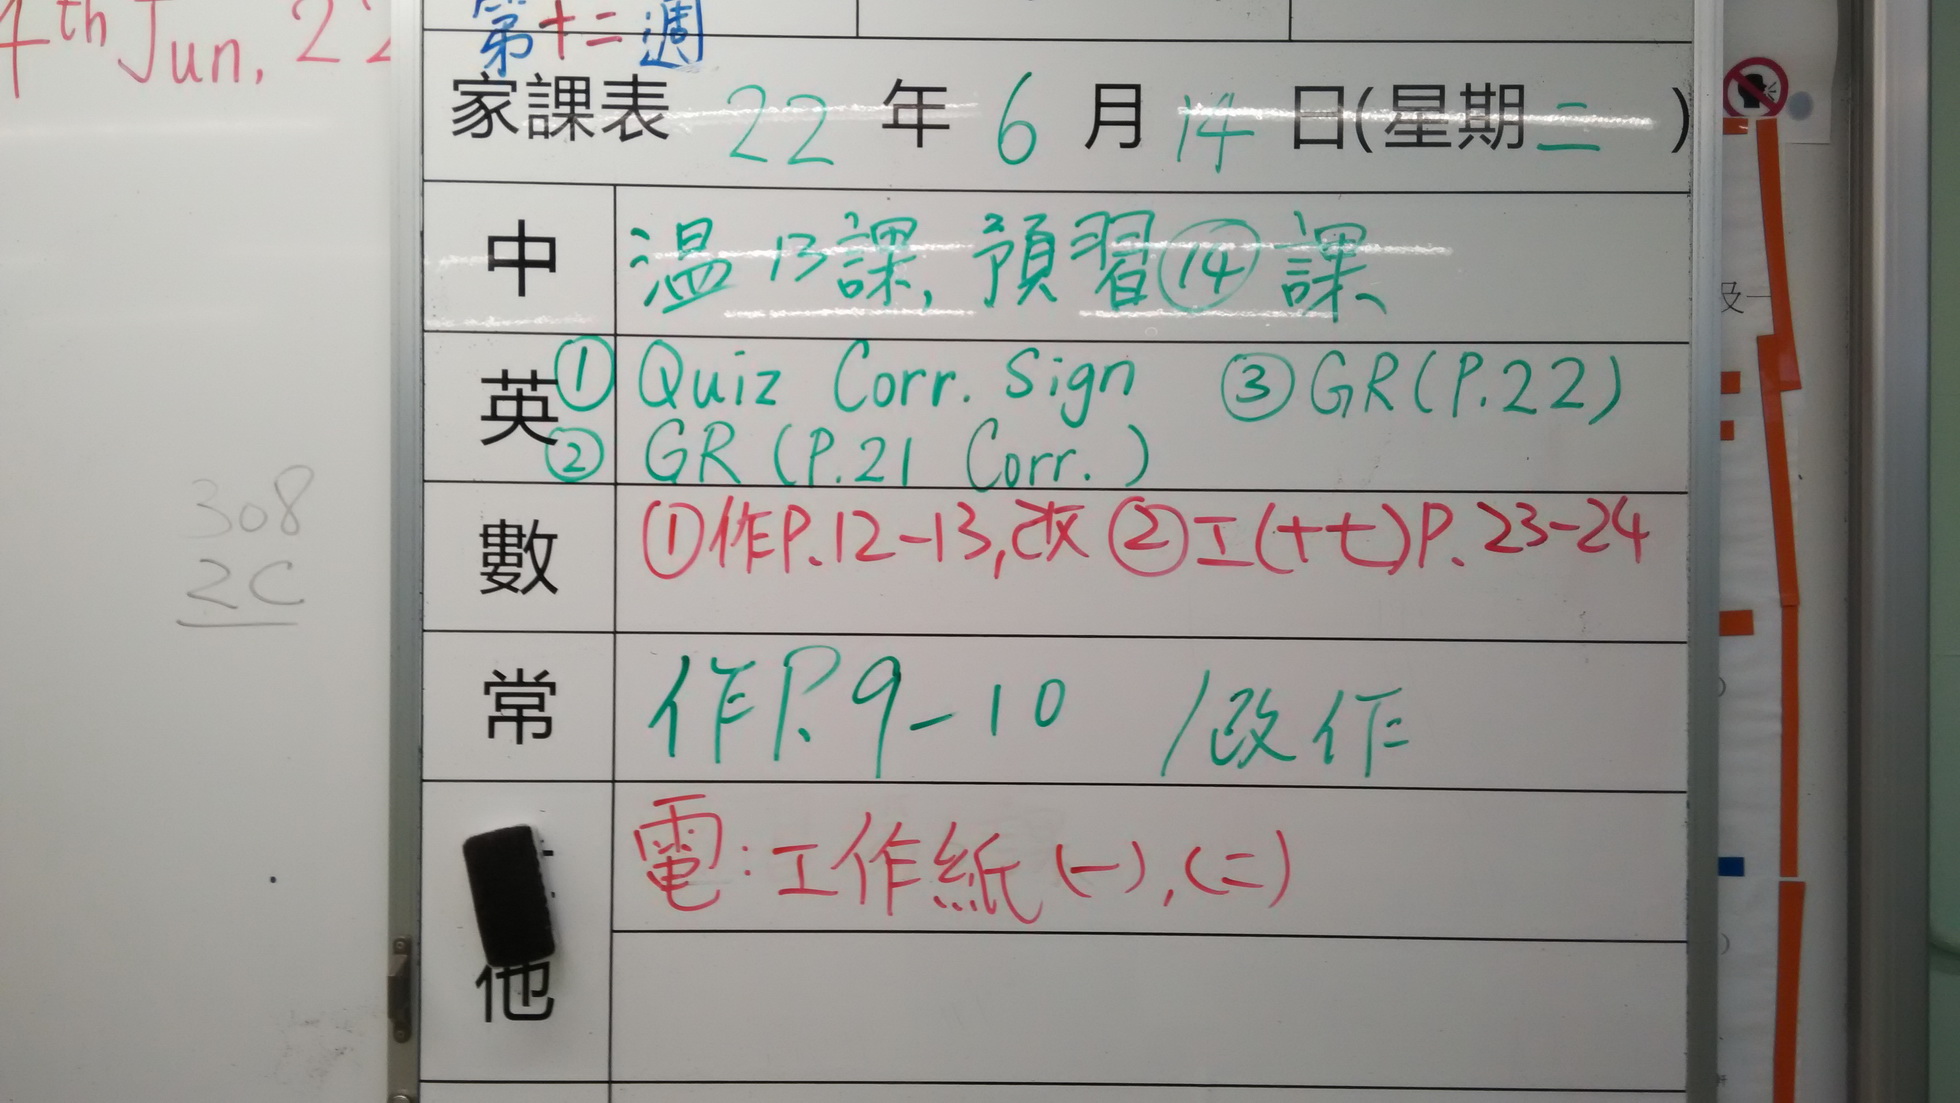 4th Jun, 22
第十二週
家課表 22 年 6 月 14 日(星期二 )
中 温13課, 預習⑭課
英 ① Quiz Corr. Sign ③ GR(P.22)
② GR (P.21 Corr.)
數 ①作P.12-13,改 ②工(十七)P.23-24
常 作P.9-10 /改作
電:工作紙(一),(二)
他
308
2C
及一